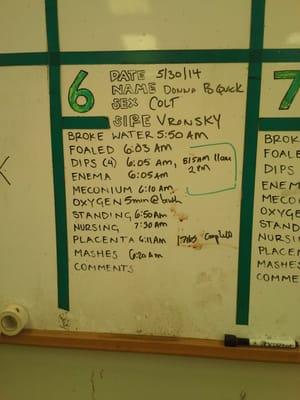 6
DATE 5/30/14
NAME DONNA
SEX COLT
SIRE VRONSKY
BROKE WATER 5:50 AM
FOALED 6:03 AM
DIPS (4) 6:05 AM, 815AM 11am
2PM
ENEMA 6:05 AM
MECONIUM 6:10 AM
OXYGEN 5min @ birth
STANDING 6:50 AM
NURSING 7:30 AM
PLACENTA 6:11AM Complete
MASHES 6:20 AM
COMMENTS
7
BROKE
FOALED
DIPS
ENEMA
MECO
OXYGE
STAND
NURSI
PLACEN
MASHES
COMME